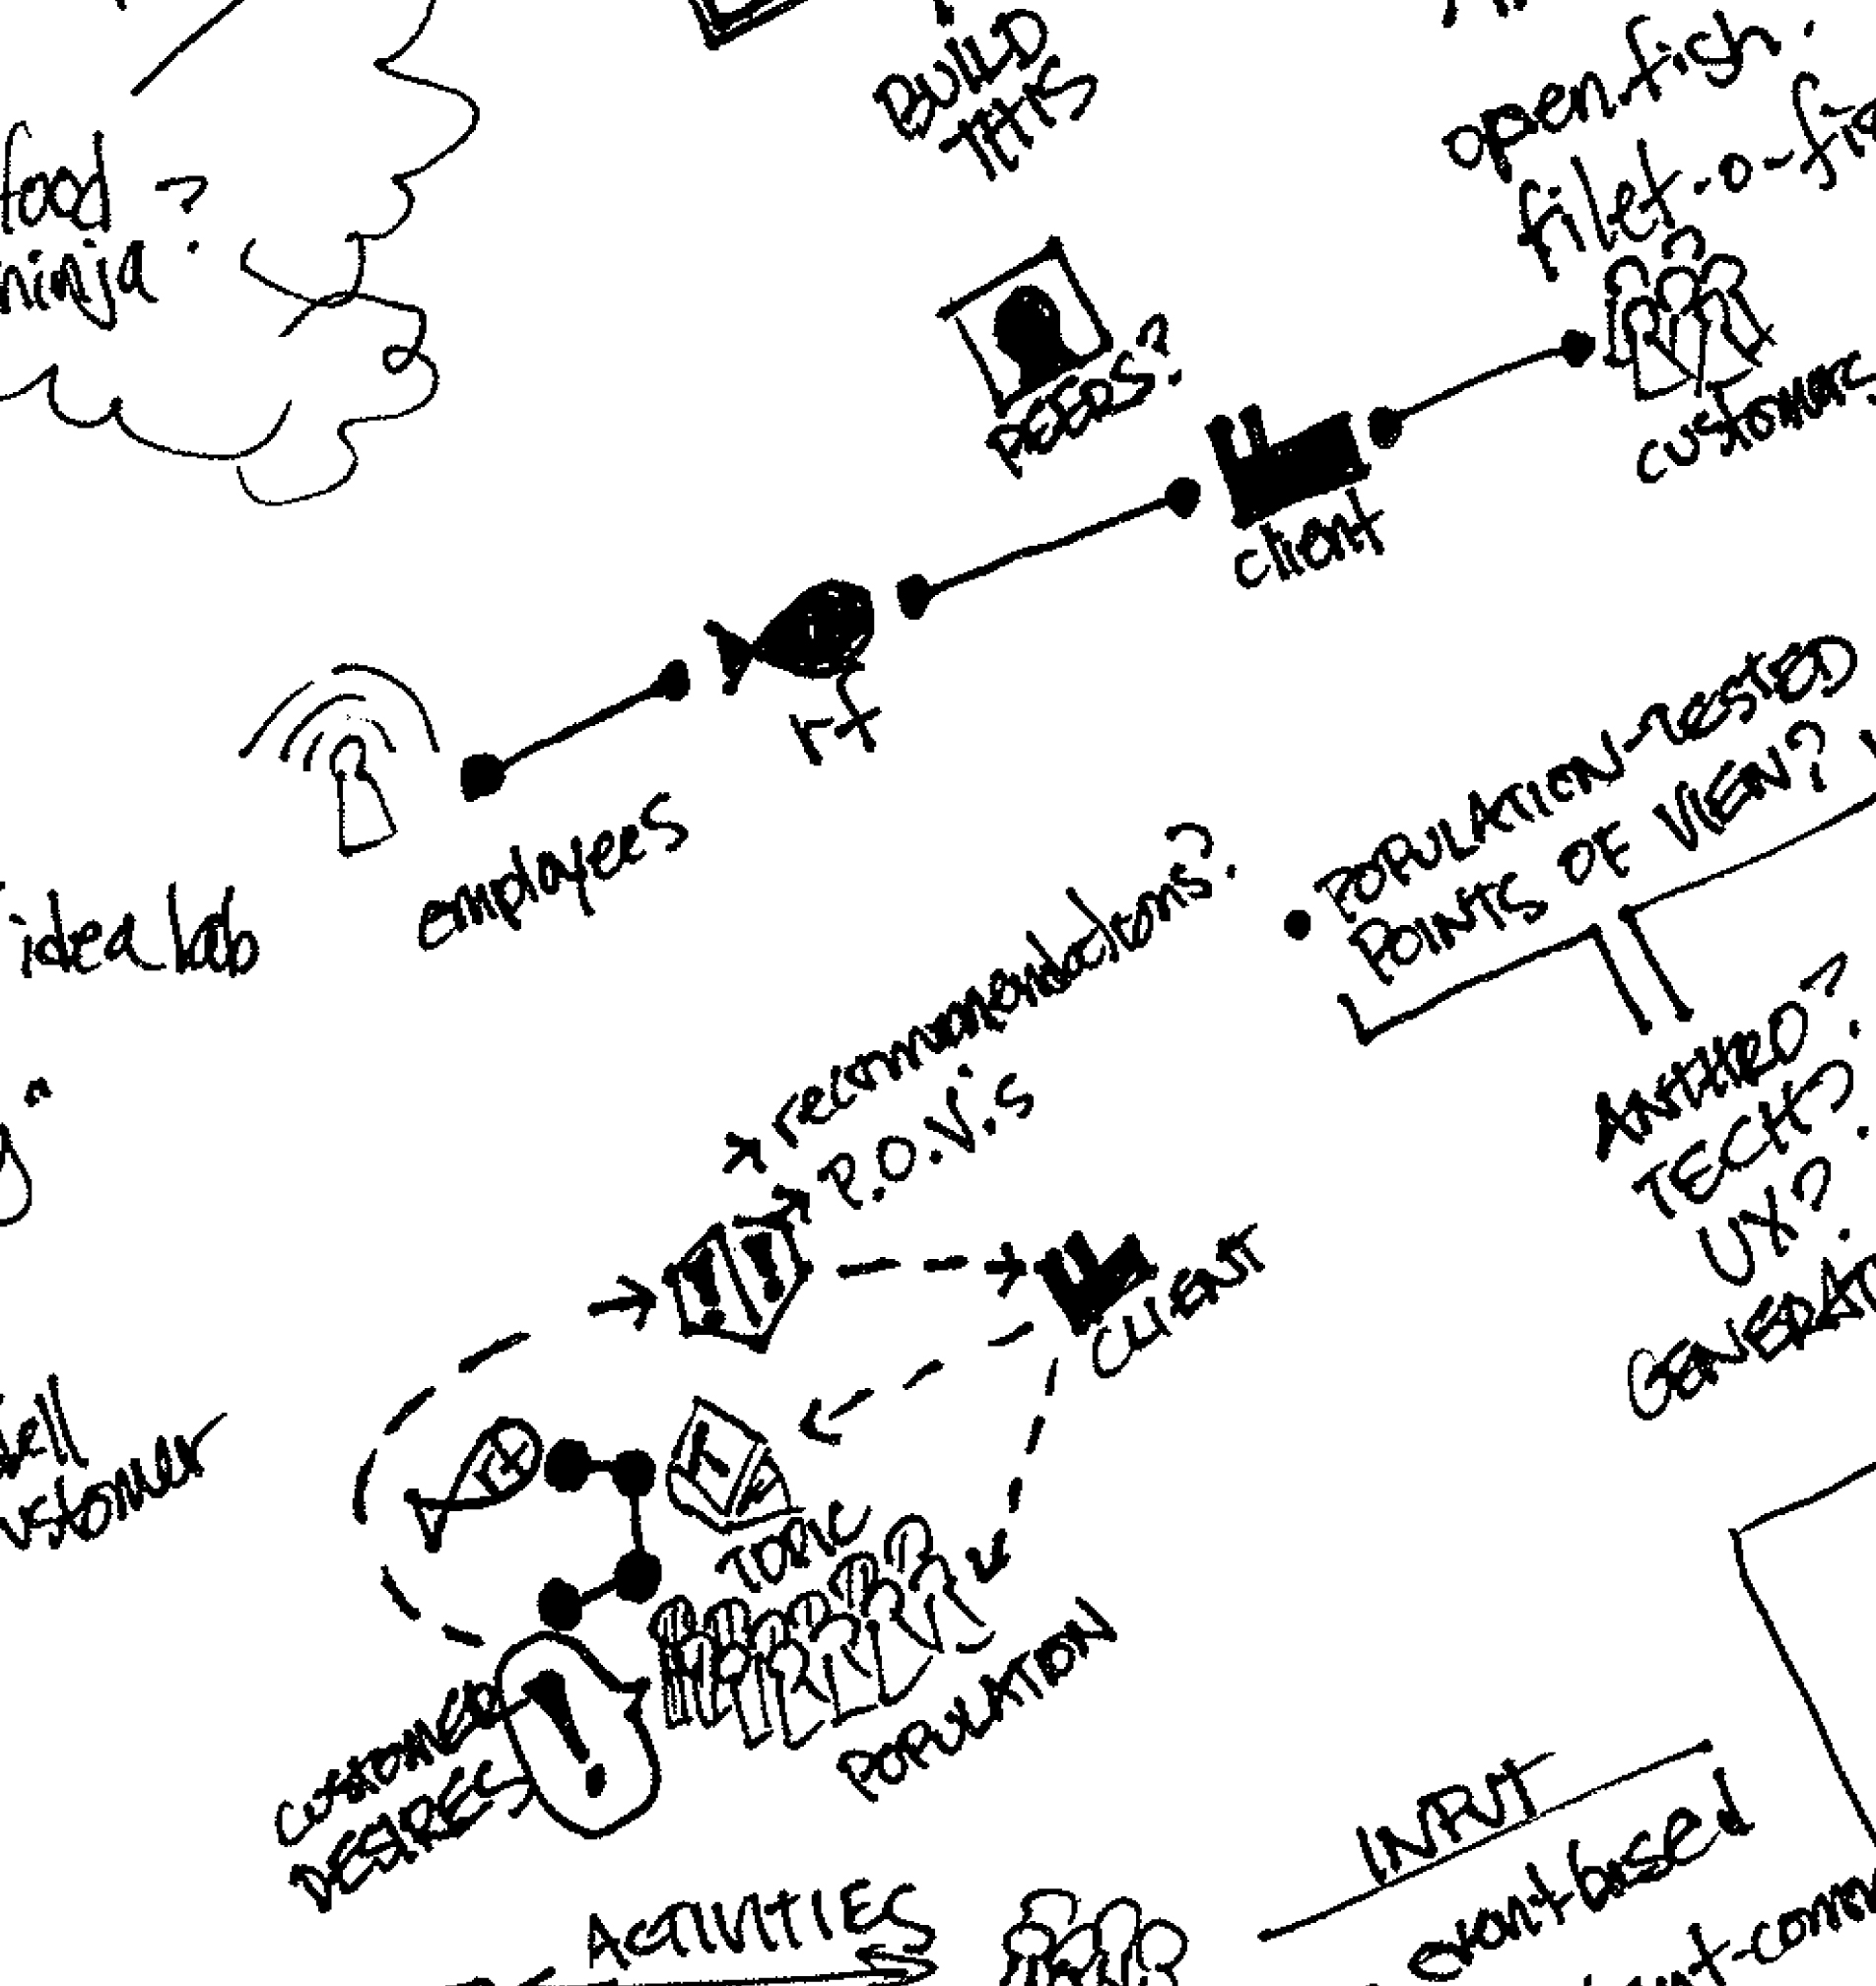 BUILD
THIS
open fish.
filet-o-fis
food
ninja?
PEERS?
customers
client
rf
employees
idea lab
POPULATION-TESTED
POINTS OF VIEW?
recommendations?
P.O.V.'s
TECH?
UX?
GENERAT
CLIENT
ell
ustomer
TOPIC
POPULATION
CUSTOMER
DESIRES
INPUT
event-based
ACTIVITIES